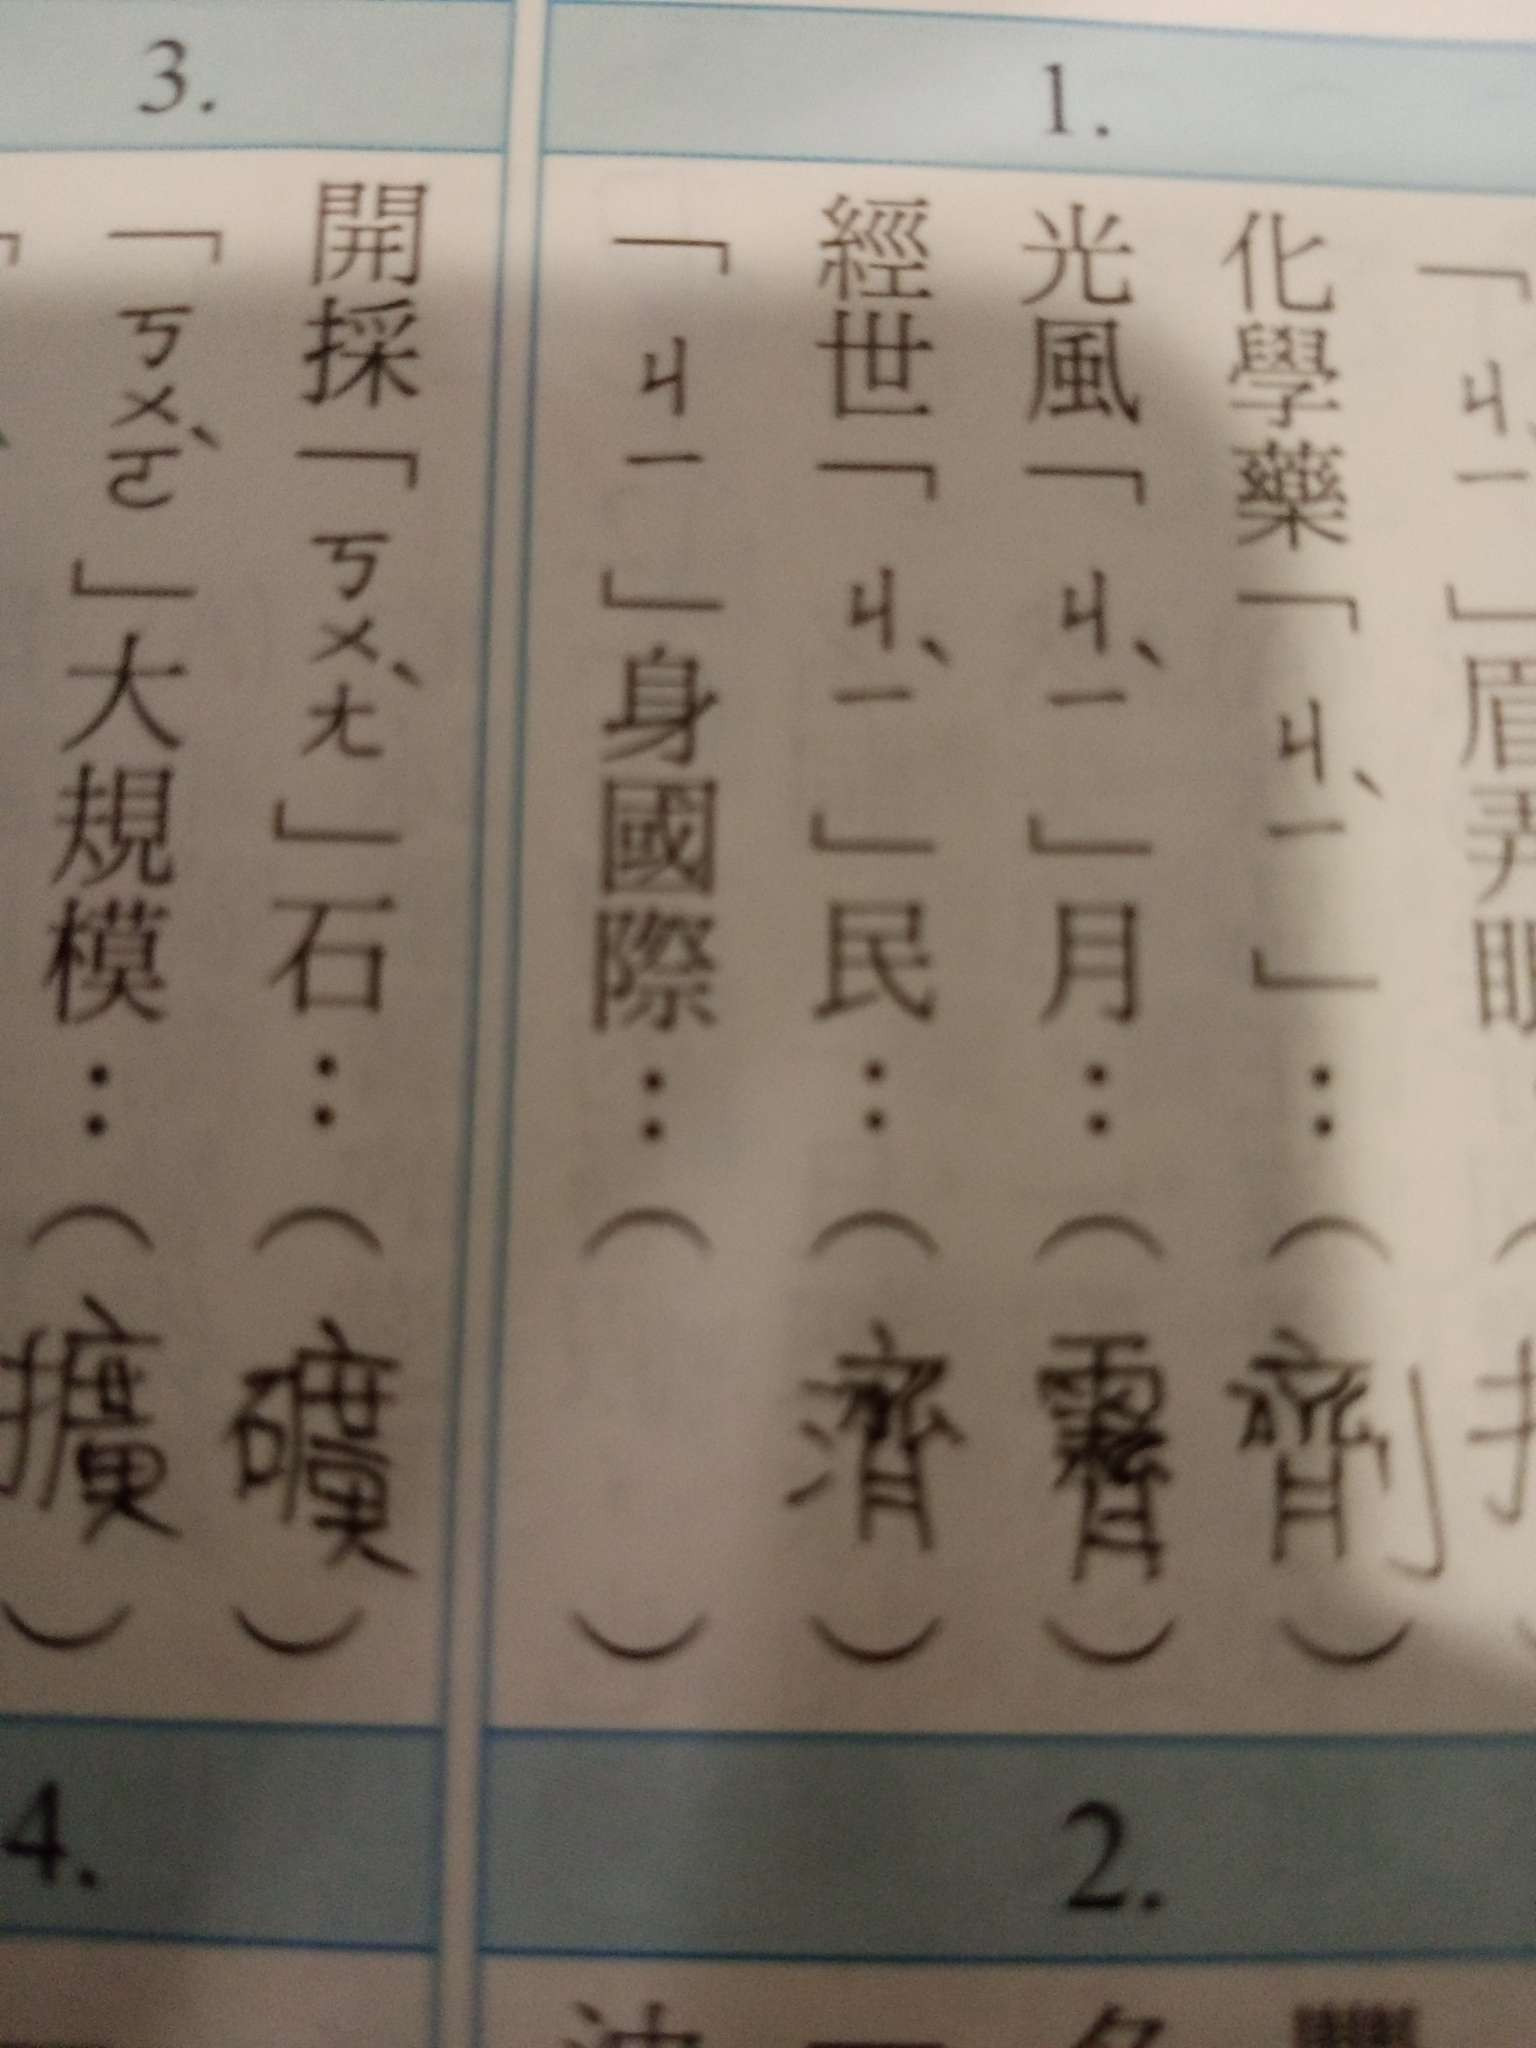 1.
「ㄐㄧ」眉弄眼
化學藥「ㄐㄧˋ」：（劑）
光風「ㄐㄧˋ」月：（霽）
經世「ㄐㄧˋ」民：（濟）
「ㄐㄧ」身國際：（ ）
3.
開採「ㄎㄨㄤˋ」石：（礦）
「ㄎㄨㄛˋ」大規模：（擴）
2.
4.